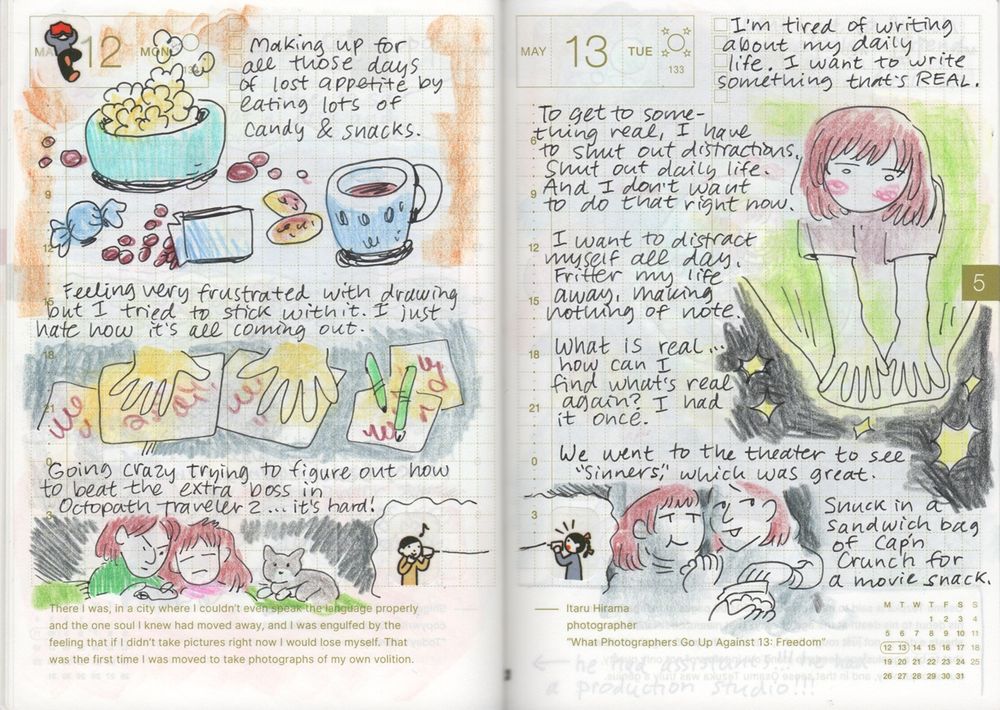 MAY 12 MON
133
Making up for
all those days
of lost appetite by
eating lots of
candy & snacks.
Feeling very frustrated with drawing
but I tried to stick with it. I just
hate how it's all coming out.
Going crazy trying to figure out how
to beat the extra boss in
Octopath Traveler 2... it's hard!
There I was, in a city where I couldn't even speak the language properly
and the one soul I knew had moved away, and I was engulfed by the
feeling that if I didn't take pictures right now I would lose myself. That
was the first time I was moved to take photographs of my own volition.
MAY 13 TUE
133
I'm tired of writing
about my daily
life. I want to write
something that's REAL.
To get to some-
thing real, I have
to shut out distractions.
Shut out daily life.
And I don't want
to do that right now.
I want to distract
myself all day.
Fritter my life
away, making
nothing of note.
What is real...
how can I
find what's real
again? I had
it once.
We went to the theater to see
"Sinners," which was great.
Snuck in a
sandwich bag
of Cap'n
Crunch for
a movie snack.
5
6
9
12
15
18
21
0
3
Itaru Hirama
photographer
"What Photographers Go Up Against 13: Freedom"
M T W T F S S
1 2 3 4
5 6 7 8 9 10 11
12 13 14 15 16 17 18
19 20 21 22 23 24 25
26 27 28 29 30 31